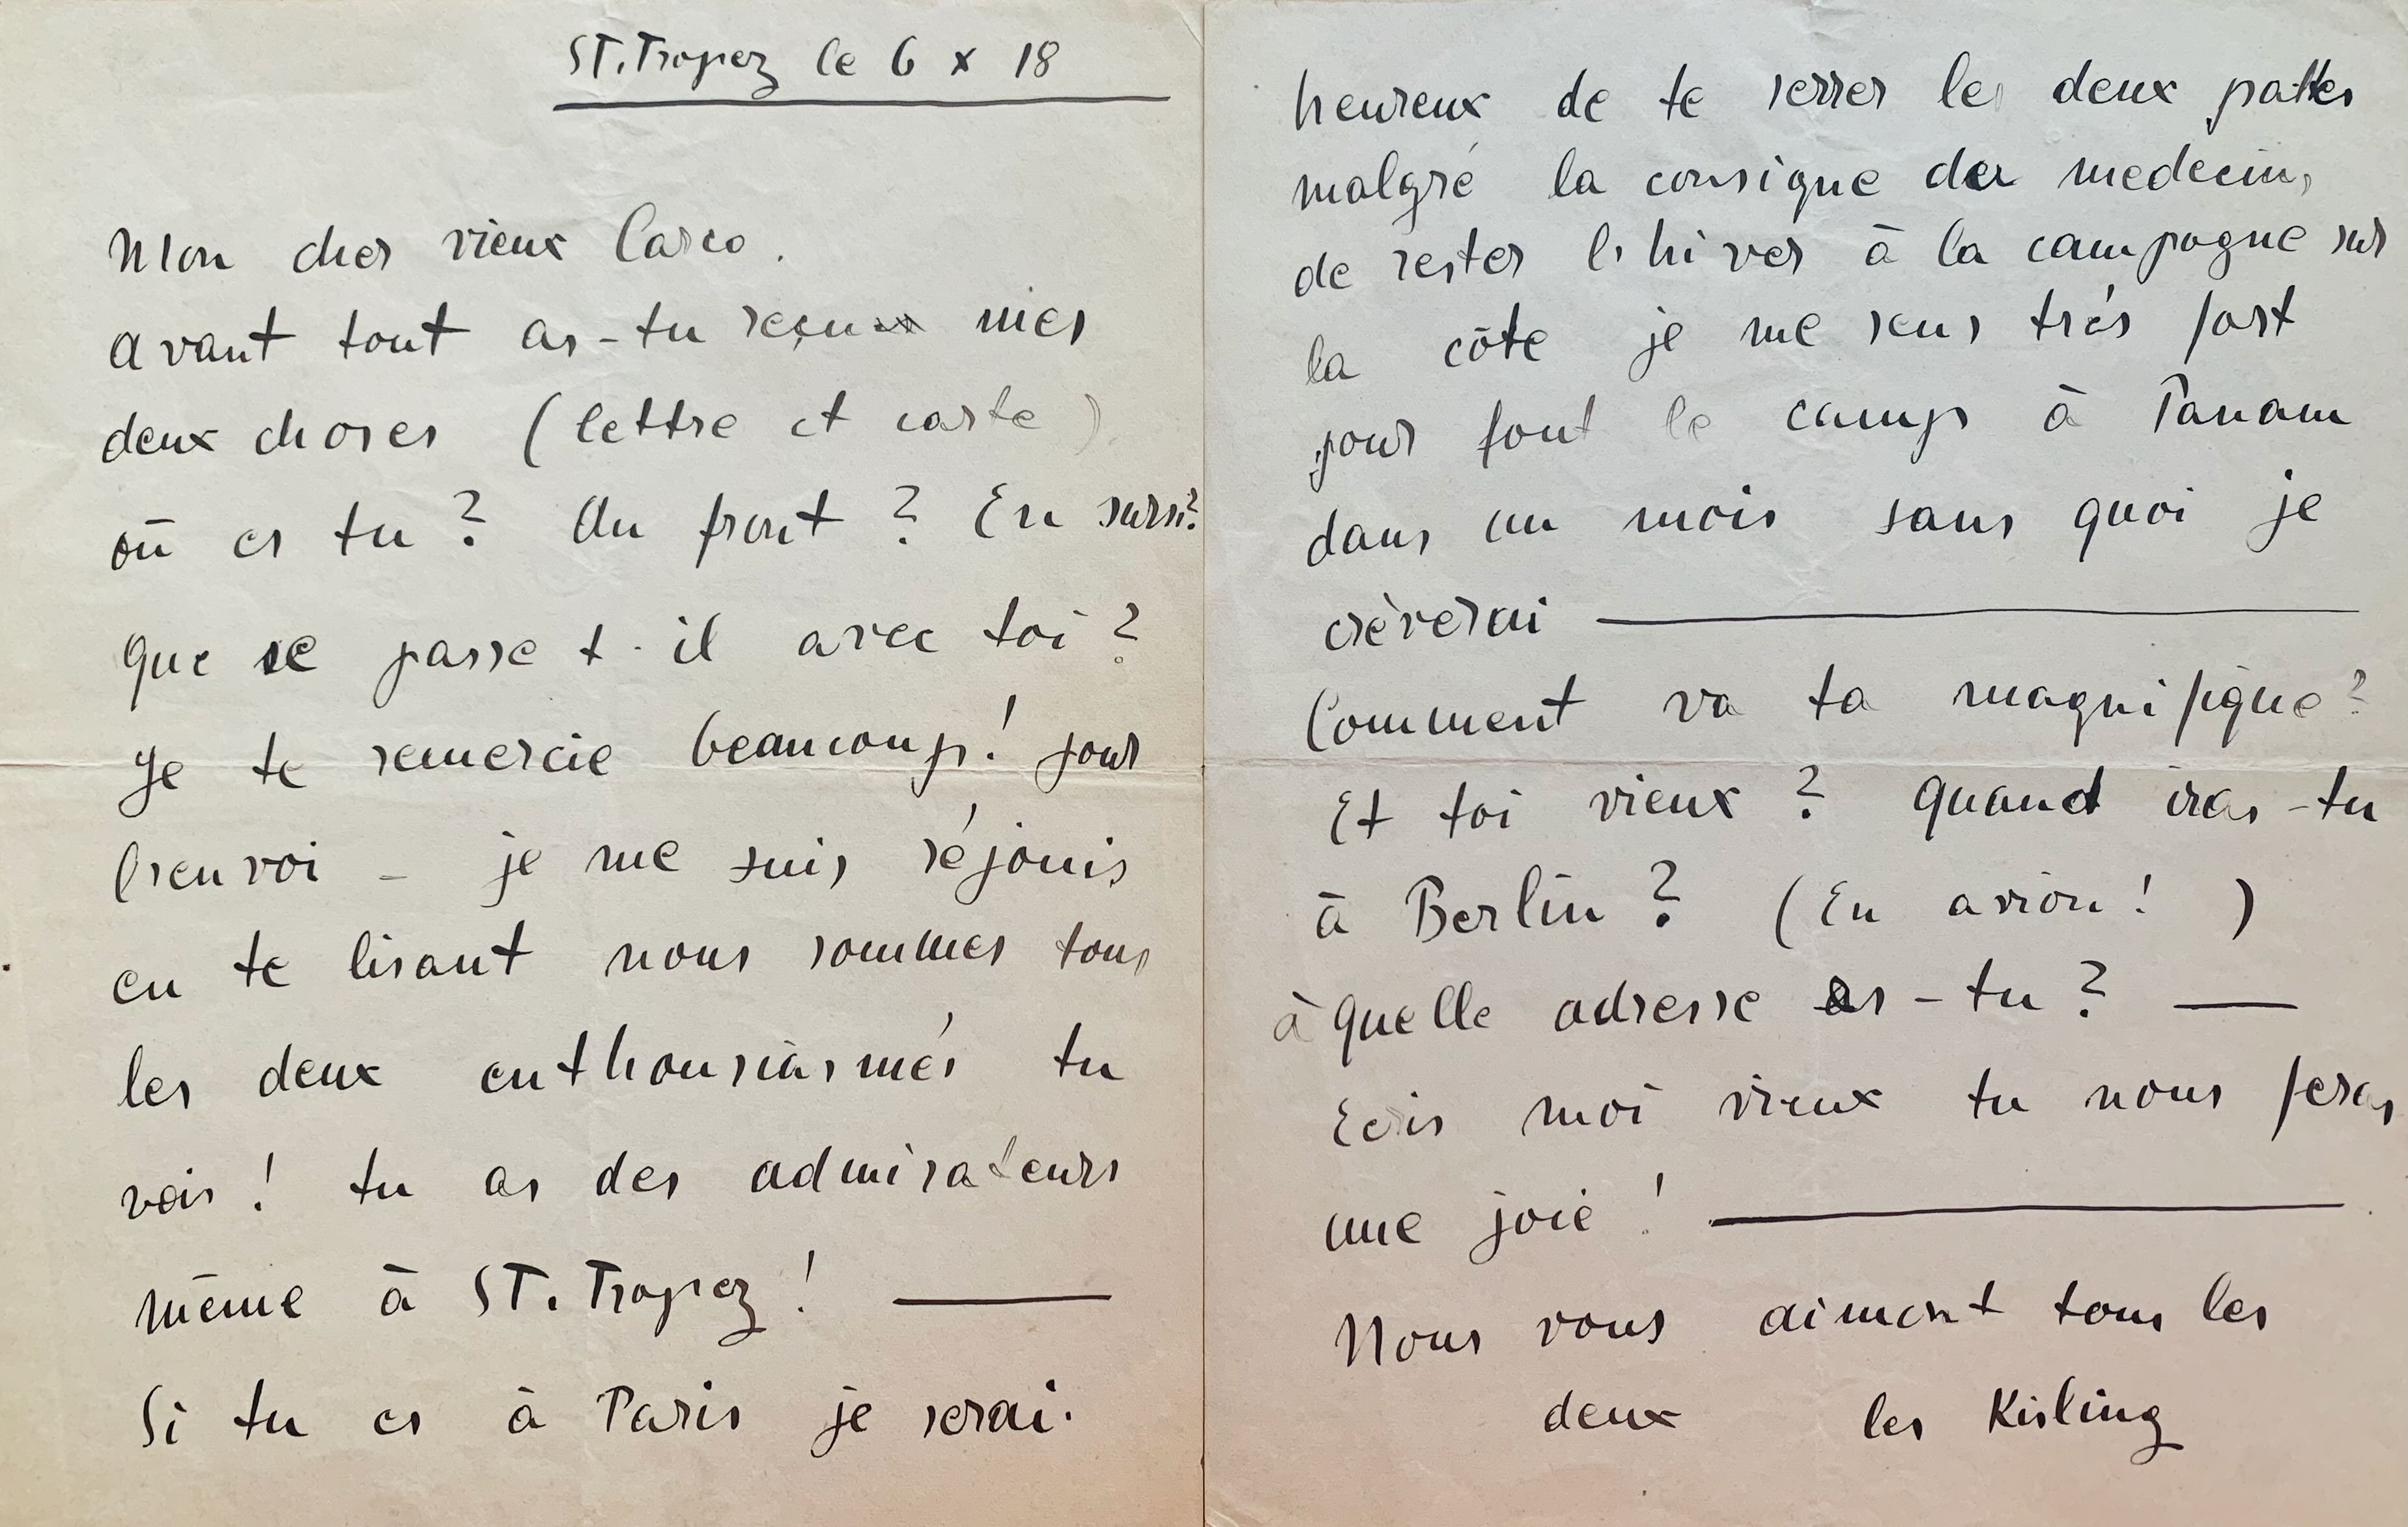 ST. Tropez le 6 x 18
Mon cher vieux Carco.
avant tout as-tu reçu mes
deux choses (lettre et carte)
où es tu? Au front? En sursi?
que se passe t. il avec toi?
Je te remercie beaucoup! pour
l'envoi – je me suis réjouis
en te lisant nous sommes tous
les deux enthousiasmés tu
vois! tu as des admirateurs
même à ST. Tropez! ——
Si tu es à Paris je serai.
heureux de te serrer les deux pattes
malgré la consigne des medecins
de rester l'hiver à la campagne sur
la côte je me sens très fort
pour fout le camp à Panam
dans un mois sans quoi je
crèverai ——
Comment va ta magnifique?
Et toi vieux? quand iras-tu
à Berlin? (En avion! )
à quelle adresse es-tu? ——
Ecris moi vieux tu nous feras
une joie! ——
Nous vous aimont tous les
deux les Kisling